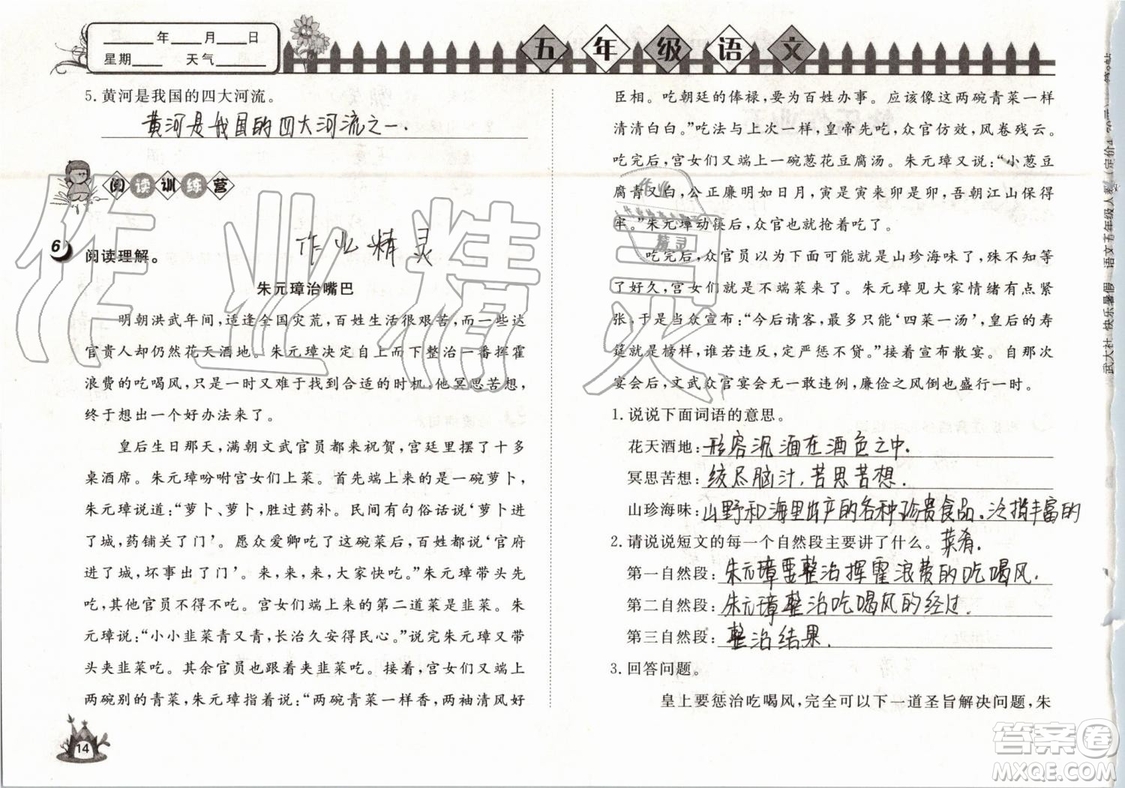 ____年____月____日
星期____ 天气____
五年级语文
5. 黄河是我国的四大河流。
黄河是我国的四大河流之一.
阅读训练营
6 阅读理解。
作业精灵
朱元璋治嘴巴
明朝洪武年间，适逢全国灾荒，百姓生活十分艰难，而一些达
官贵人却仍然花天酒地。朱元璋决定自上而下整治一番挥霍
浪费的吃喝风，只是一时难于找到合适的时机。他冥思苦想，
终于想出一个好办法来了。
皇后生日那天，满朝文武官员都来祝贺，宫廷里摆了好多
桌酒席。朱元璋吩咐宫女们上菜。首先端上来的是一碗萝卜，
朱元璋说道：“萝卜、萝卜，胜过药补。民间有句俗话说‘萝卜进
了城，药铺关了门’。愿众爱卿吃了这碗菜后，百姓都说‘官府
进了城，坏事出了门’。来，来，来，大家快吃。”朱元璋带头先
吃，其他官员不得不吃。宫女们端上来的第二道菜是韭菜。朱
元璋说：“小小韭菜青又青，长治久安得民心。”说完朱元璋又带
头夹韭菜吃。其余官员也跟着夹韭菜吃。接着，宫女们又端上
两碗别的青菜，朱元璋指着说：“两碗青菜一样香，两袖清风好
臣相。吃朝廷的俸禄，要为百姓办事。应该像这两碗青菜一样
清清白白。”吃法与上次一样，皇帝先吃，众官仿效，风卷残云。
吃完后，宫女们又端上一碗葱花豆腐汤。朱元璋又说：“小葱豆
腐青又白，公正廉明如日月，寅是寅来卯是卯，吾朝江山保得
牢。”朱元璋动筷后，众官也抢着吃了。
吃完后，众官员以为下面一定是山珍海味了，殊不知等
了好久，宫女们就是不端菜来了。朱元璋见大家情绪有点紧
张，于是当众宣布：“今后请客，最多只能‘四菜一汤’，皇后的寿
筵就是榜样，谁若违反，定严惩不贷。”接着宣布散宴。自那次
宴会后，文武众官无一敢违例，廉俭之风倒也盛行一时。
1. 说说下面词语的意思。
花天酒地：形容沉湎在酒色之中.
冥思苦想：绞尽脑汁，苦思苦想.
山珍海味：山野和海里出产的各种珍贵食品。泛指丰富的
菜肴.
2. 请说说短文的每一个自然段主要讲了什么。
第一自然段：朱元璋要整治挥霍浪费的吃喝风.
第二自然段：朱元璋整治吃喝风的经过.
第三自然段：整治结果.
3. 回答问题。
皇上要惩治吃喝风，完全可以下一道圣旨解决问题，朱
14
作业精灵
作业精灵
答案圈
MXQE.COM